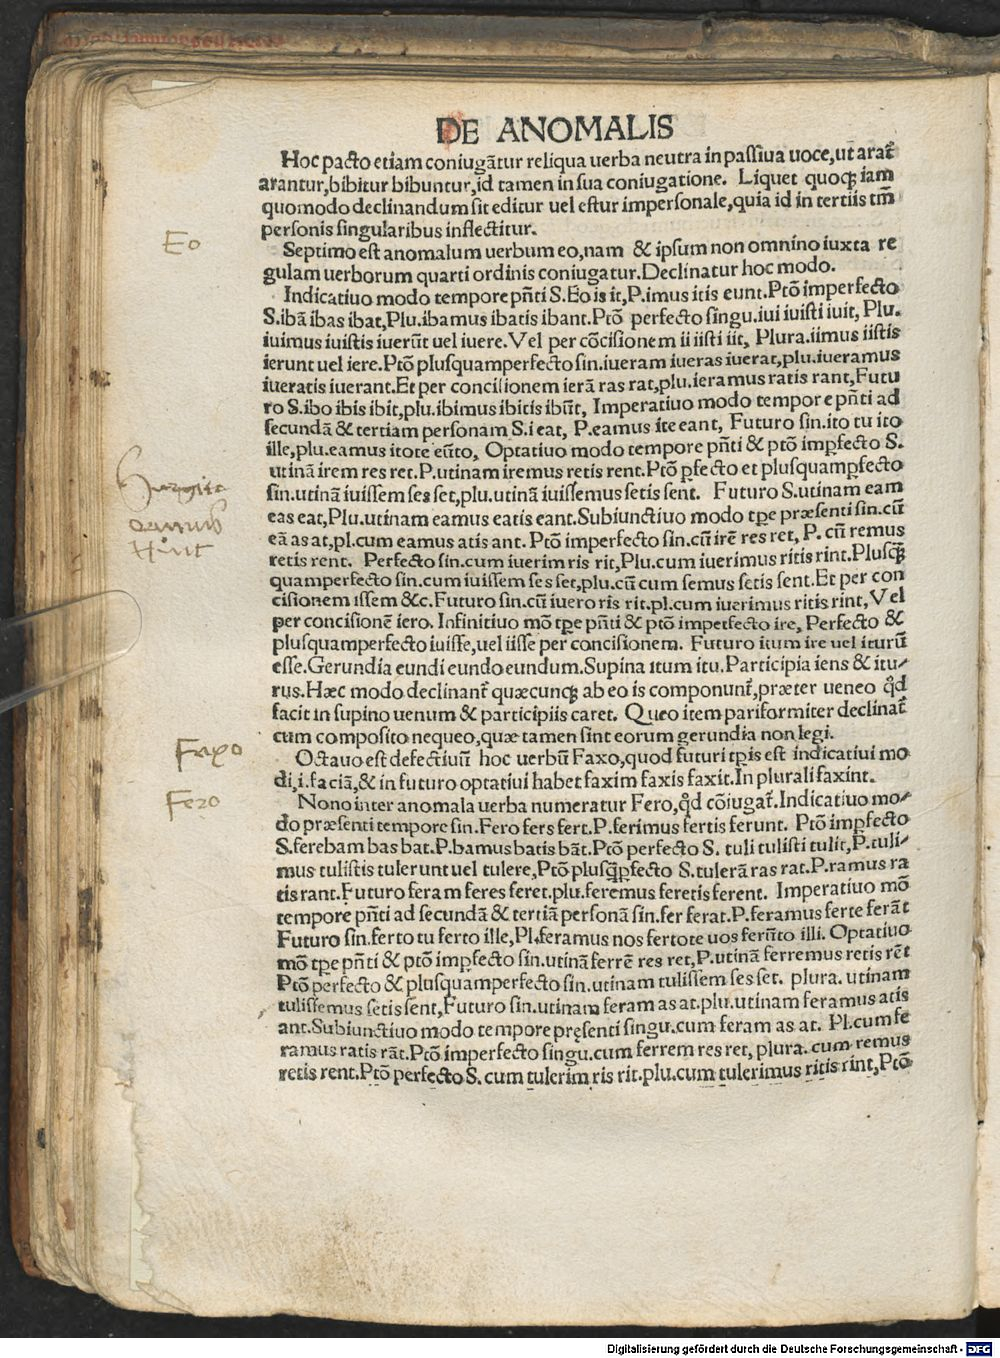 DE ANOMALIS
Hoc pacto etiam coniugãtur reliqua uerba neutra in passiua uoce,ut arat̃
arantur,bibitur bibuntur,id tamen in sua coniugatione. Liquet quoqꝫ iam
quomodo declinandum sit editur uel estur impersonale,quia id in tertiis tm̃
personis singularibus inflectitur.
Eo
Septimo est anomalum uerbum eo,nam & ipsum non omnino iuxta re
gulam uerborum quarti ordinis coniugatur.Declinatur hoc modo.
Indicatiuo modo tempore pñti S.Eo is it,P.imus itis eunt.Ptõ imperfecto
S.ibã ibas ibat,Plu.ibamus ibatis ibant.Ptõ perfecto singu.iui iuisti iuit, Plu.
iuimus iuistis iuerũt uel iuere.Vel per cõcisionem ii iisti iit, Plura.iimus iistis
ierunt uel iere.Ptõ plusquamperfecto sin.iueram iueras iuerat,plu.iueramus
iueratis iuerant.Et per concisionem ierã ras rat,plu.ieramus ratis rant,Futu
ro S.ibo ibis ibit,plu.ibimus ibitis ibũt, Imperatiuo modo tempore pñti ad
secundã & tertiam personam S.i eat, P.eamus ite eant, Futuro sin.ito tu ito
ille,plu.eamus itote eũto, Optatiuo modo tempore pñti & ptõ imꝑfecto S.
utinã irem res ret.P.utinam iremus retis rent.Ptõ ꝑfecto et plusquamꝑfecto
sin.utinã iuissem ses set,plu.utinã iuissemus setis sent. Futuro S.utinam eam
eas eat,Plu.utinam eamus eatis eant.Subiunctiuo modo tꝑe præsenti sin.cũ
eã as at,pl.cum eamus atis ant. Ptõ imperfecto sin.cũ irẽ res ret, P. cũ remus
retis rent. Perfecto sin.cum iuerim ris rit,Plu.cum iuerimus ritis rint.Plusqꝫ
quamperfecto sin.cum iuissem ses set,plu.cũ cum semus setis sent.Et per con
cisionem issem &c.Futuro sin.cũ iuero ris rit.pl.cum iuerimus ritis rint,Vel
per concisionẽ iero. Infinitiuo mõ tꝑe pñti & ptõ imperfecto ire, Perfecto &
plusquamperfecto iuisse,uel iisse per concisionem. Futuro itum ire uel iturũ
esse.Gerundia eundi eundo eundum.Supina itum itu.Participia iens & itu⸗
rus.Hæc modo declinant̃ quæcunqꝫ ab eo is componunt̃,præter ueneo qd̃
facit in supino uenum & participiis caret. Queo item pariformiter declinat̃
cum composito nequeo,quæ tamen sint eorum gerundia non legi.
Faxo
Octauo est defectiuũ hoc uerbũ Faxo,quod futuri tꝑis est indicatiui mo
di,i.faciã,& in futuro optatiui habet faxim faxis faxit.In plurali faxint.
Fero
Nono inter anomala uerba numeratur Fero,qd̃ cõiugat̃.Indicatiuo mo⸗
do præsenti tempore sin.Fero fers fert.P.ferimus fertis ferunt. Ptõ imꝑfecto
S.ferebam bas bat.P.bamus batis bãt.Ptõ perfecto S. tuli tulisti tulit,P.tuli⸗
mus tulistis tulerunt uel tulere,Ptõ plusqꝫꝑfecto S.tulerã ras rat.P.ramus ra
tis rant.Futuro feram feres feret.plu.feremus feretis ferent. Imperatiuo mõ
tempore pñti ad secundã & tertiã personã sin.fer ferat.P.feramus ferte ferãt
Futuro sin.ferto tu ferto ille,Pl.feramus nos fertote uos ferũto illi. Optatiuo
mõ tꝑe pñti & ptõ imꝑfecto sin.utinã ferrẽ res ret,P.utinã ferremus retis rẽt
Ptõ perfecto & plusquamperfecto sin.utinam tulissem ses set. plura. utinam
tulissemus setis sent,Futuro sin.utinam feram as at.plu.utinam feramus atis
ant.Subiunctiuo modo tempore pręsenti singu.cum feram as at. Pl.cum fe
ramus ratis rãt.Ptõ imperfecto singu.cum ferrem res ret, plura. cum remus
retis rent.Ptõ perfecto S. cum tulerim ris rit.plu.cum tulerimus ritis rint,Ptõ
Digitalisierung gefördert durch die Deutsche Forschungsgemeinschaft - DFG